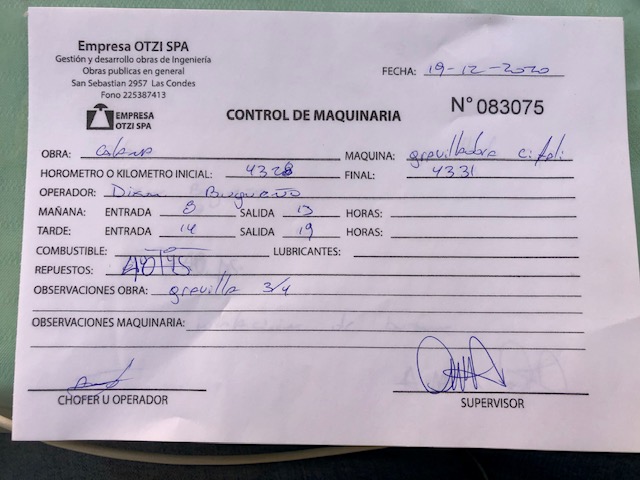 Empresa OTZI SPA
Gestión y desarrollo obras de Ingeniería
Obras publicas en general
San Sebastian 2957 Las Condes
Fono 225387413
EMPRESA
OTZI SPA
FECHA: 19-12-2020
CONTROL DE MAQUINARIA
N° 083075
OBRA: MAQUINA: gravilladora
HOROMETRO O KILOMETRO INICIAL: 4328 FINAL: 4331
OPERADOR:
MAÑANA: ENTRADA 8 SALIDA 13 HORAS:
TARDE: ENTRADA 14 SALIDA 19 HORAS:
COMBUSTIBLE: LUBRICANTES:
REPUESTOS:
OBSERVACIONES OBRA: gravilla 3/4
OBSERVACIONES MAQUINARIA:
CHOFER U OPERADOR
SUPERVISOR